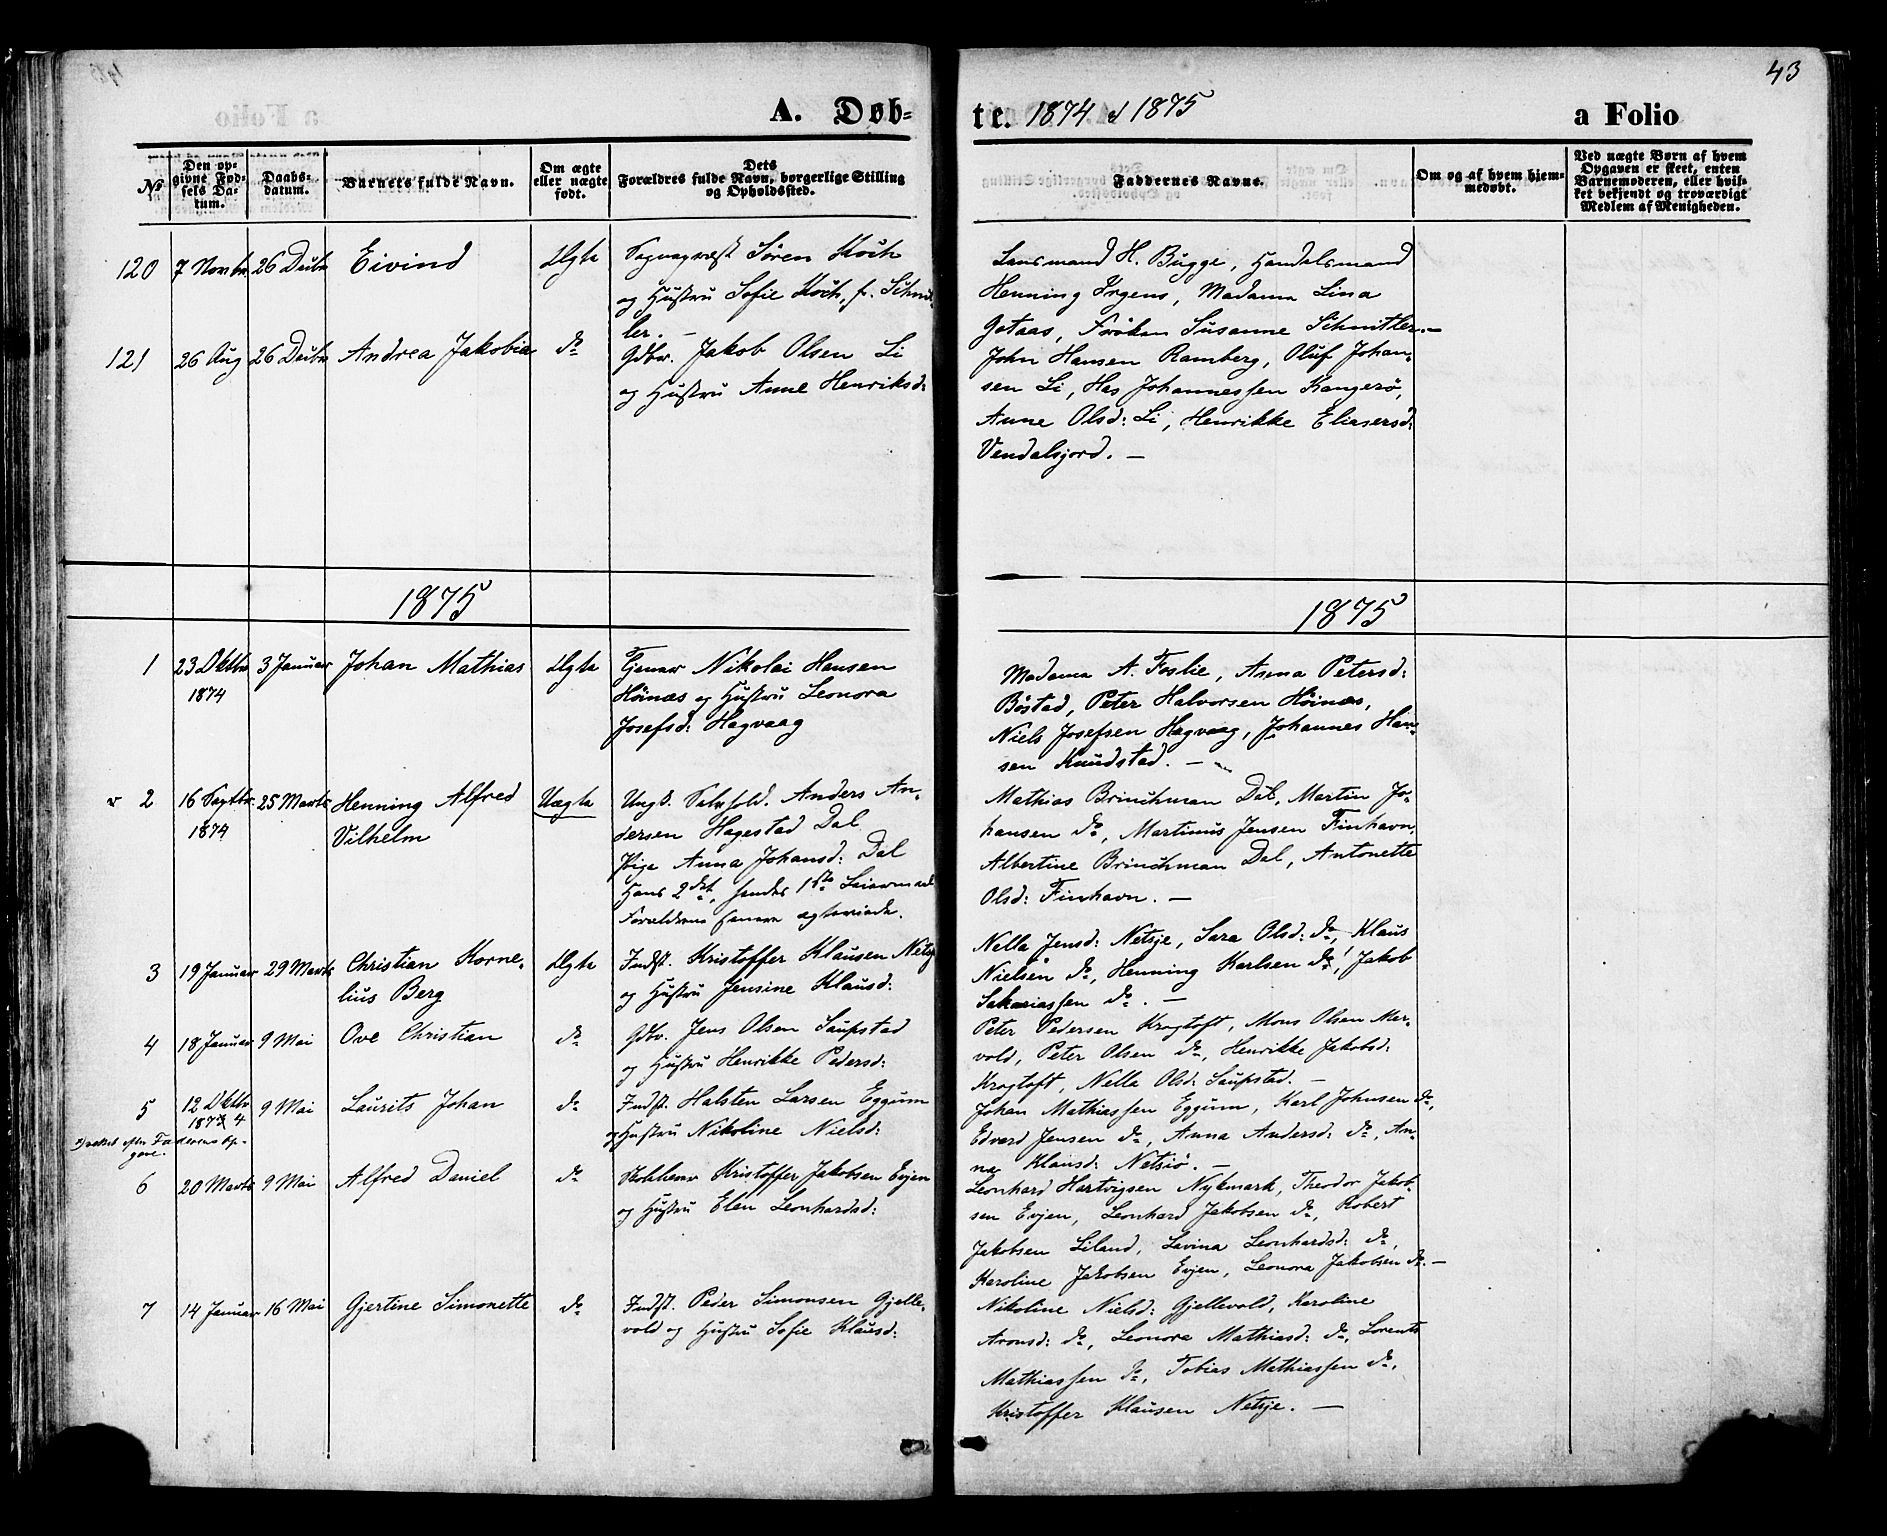 43
A. Døb-
te. 1874 & 1875
a Folio
No
Den op-
givne Fød-
sels Da-
tum.
Daabs-
datum.
Barnets fulde Navn.
Om ægte
eller uægte
født.
Dets
Forældres fulde Navn, borgerlige Stilling
og Opholdssted.
Faddernes Navne.
Om og af hvem hjem-
medøbt.
Ved uægte Børn af hvem
Opgaven er skeet, enten
Barnemoderen, eller hvil-
ket bekjendt og troværdigt
Medlem af Menigheden.
120 7 Novbr 26 Decbr Eivind Ægte Søren Koch
og Hustru Sofie Koch, f. Schmit-
ler. –
Lensmand H. Bugge, Handelsmand
Henning Irgens, Madame Lina
Gotaas, Frøken Susanne Schmitler. –
121 26 Aug 26 Decbr Andrea Jakobia do Gdbr. Jakob Olsen Li
og Hustru Anne Henriksd:
John Hansen Ramberg, Oluf Johan-
sen Li, Has Johannessen Kangerø,
Anne Olsd: Li, Henrikke Eliasersd:
Vendalsjord. –
1875
1875
1 23 Oktbr 3 Januar Johan Mathias Ægte Nikolai Hansen
1874 Høinæs og Hustru Leonora
Josefsd: Hagvaag
Madame A. Foslie, Anna Petersd:
Bøstad, Peter Halvorsen Høinæs,
Niels Josefsen Hagvaag, Johannes Han-
sen Knudstad. –
2 16 Septbr 25 Marts Henning Alfred Uægte Ungk. Anders An-
1874 Vilhelm dersen Hagestad Dal
Pige Anna Johansd: Dal
Hans 2det, hendes 1ste Leiermaal
Mathias Brinchman Dal, Martin Jo-
hansen do, Martinus Jensen Finhavn,
Albertine Brinchman Dal, Antonette
Olsd: Finhavn. –
3 19 Januar 29 Marts Christian Korne- Ægte Indst. Kristoffer Klausen Netsje
lius Berg og Hustru Jensine Klausd:
Nella Jensd: Netsje, Sara Olsd: do, Klaus
Nielsen do, Henning Karlsen do, Jakob
Sakariassen do. –
4 18 Januar 9 Mai Ove Christian do Gdbr. Jens Olsen Saupstad
og Hustru Henrikke Pedersd:
Peter Pedersen Krogtoft, Mons Olsen Mer-
vold, Peter Olsen do, Henrikke Jakobsd:
Krogtoft, Nella Olsd: Saupstad. –
5 12 Oktbr 9 Mai Laurits Johan do Indst. Halsten Larsen Eggum
og Hustru Nikoline Nielsd:
Johan Mathiassen Eggum, Karl Johnsen do,
Edvard Jensen do, Anna Andersd: do, An-
na Klausd: Netsiø. –
6 20 Marts 9 Mai Alfred Daniel do Kristoffer Jakobsen Evjen
og Hustru Elen Leonhardsd:
Leonhard Hartvigsen Nykmark, Theodor Jakob-
sen Evjen, Leonhard Jakobsen do, Robert
Jakobsen Liland, Lavina Leonhardsd: do,
Karoline Jakobsen Evjen, Leonora Jakobsen do. –
7 14 Januar 16 Mai Gjertine Simonette do Indst. Peder Simonsen Gjelle-
vold og Hustru Sofie Klausd:
Nikoline Nielsd: Gjellevold, Karoline
Aronsd: do, Leonora Mathiasd: do, Lorents
Mathiassen do, Tobias Mathiassen do,
Kristoffer Klausen Netsje. –